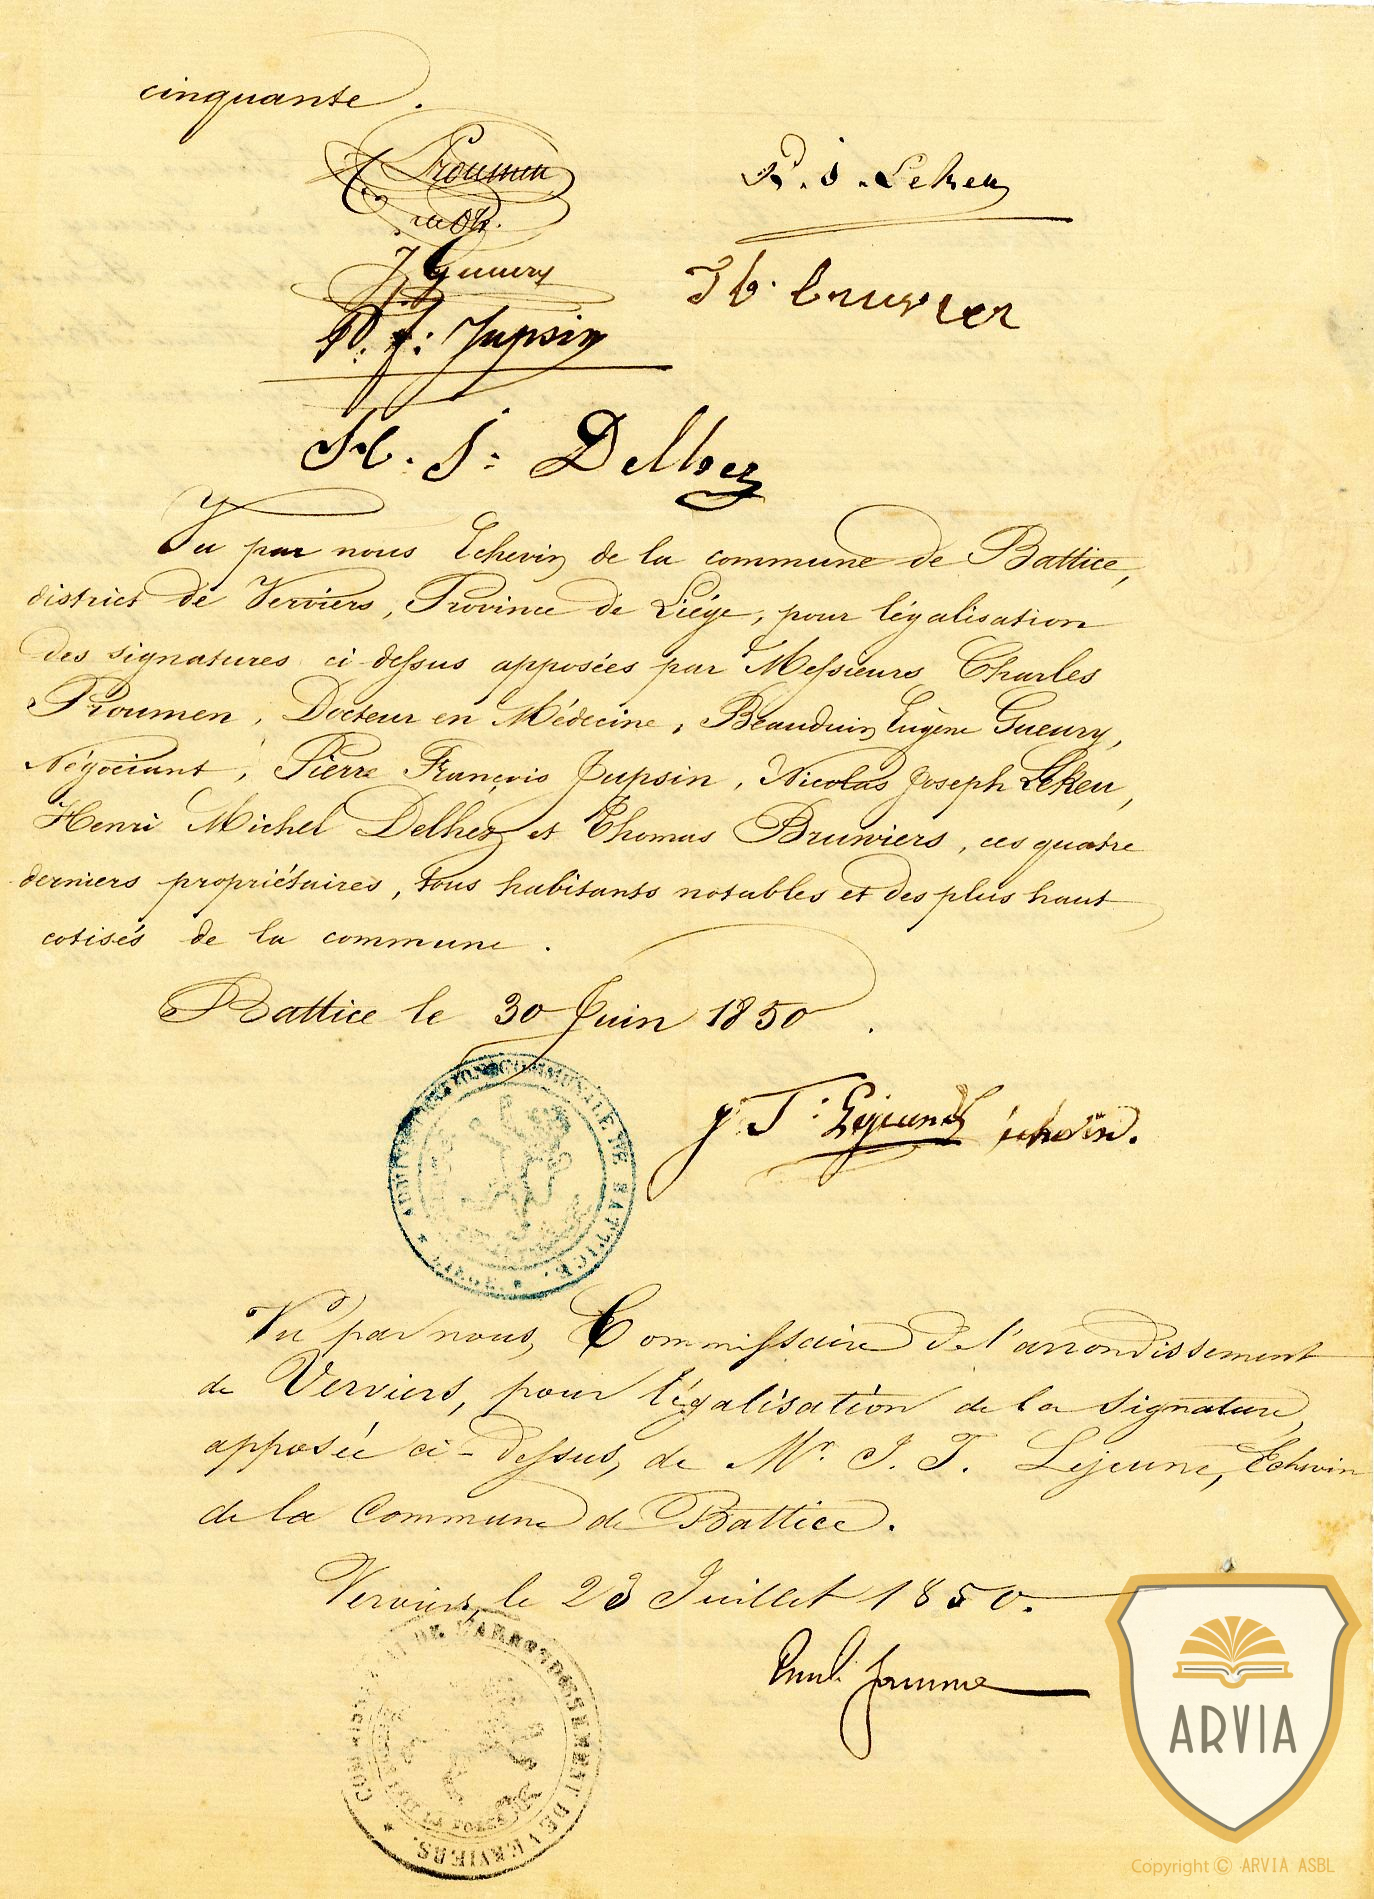 cinquante.
C. Proumen
N. J. Lekeu
J Gueury
Th. bruwier
P. f: Jupsin
H. J: Delhez
Vu par nous Echevin de la commune de Battice,
district de Verviers, Province de Liége, pour légalisation
des signatures ci-dessus apposées par Messieurs Charles
Proumen, Docteur en Médecine, Beauduin Eugène Gueury,
Négociant, Pierre François Jupsin, Nicolas Joseph Lekeu,
Henri Michel Delhez et Thomas Bruwiers, ces quatre
derniers propriétaires, tous habitants notables et des plus haut
cotisés de la commune.
Battice le 30 Juin 1850.
ADMINISTRATION COMMUNALE DE BATTICE. * LIÉGE *
J T: Lejeune échevin.
Vu par nous, Commissaire de l'arrondissement
de Verviers, pour légalisation de la signature,
apposée ci-dessus, de Mr. J. T. Lejeune, Echevin
de la Commune de Battice.
Verviers, le 23 Juillet 1850.
COMMISSARIAT DE L'ARRONDISSEMENT DE VERVIERS. *
ARVIA
Copyright © ARVIA ASBL